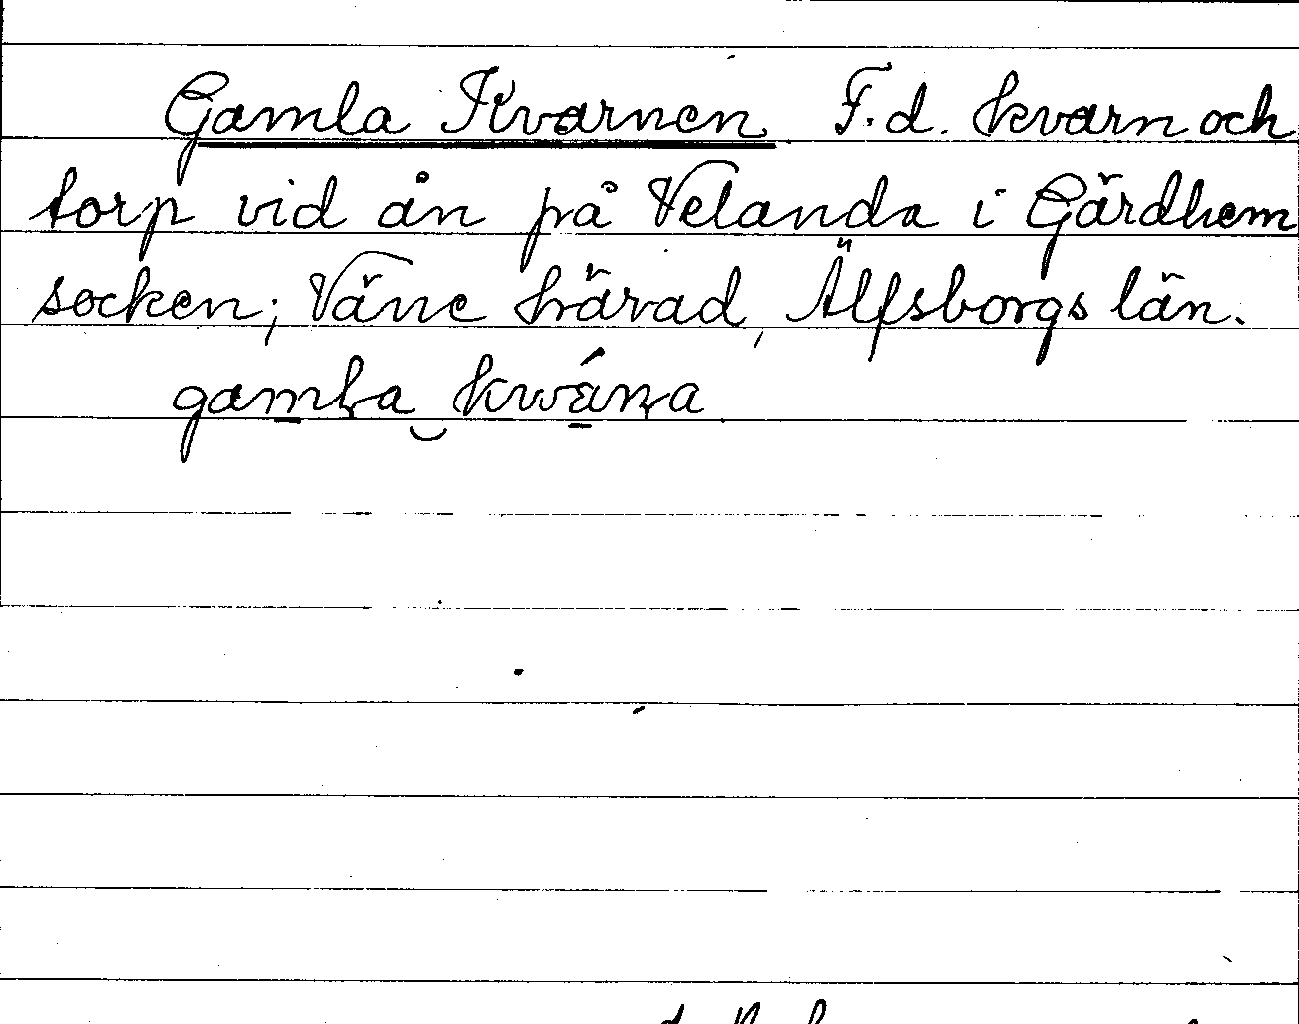 Gamla Kvarnen F.d. kvarn och
torp vid ån på Velanda i Gärdhem
socken; Väne härad, Älfsborgs län.
gamla kwána